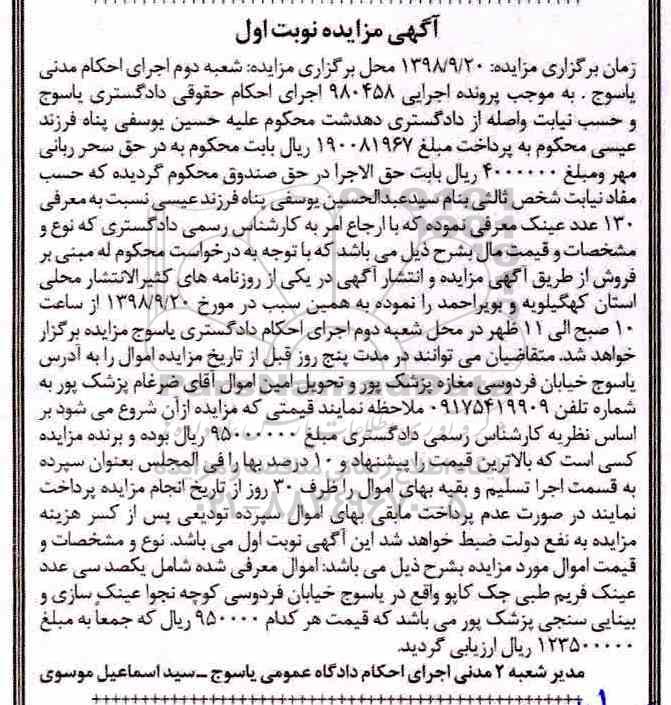 آگهی مزایده نوبت اول
زمان برگزاری مزایده: ۱۳۹۸/۹/۲۰ محل برگزاری مزایده: شعبه دوم اجرای احکام مدنی
یاسوج . به موجب پرونده اجرایی ۹۸۰۴۵۸ اجرای احکام حقوقی دادگستری یاسوج
و حسب نیابت واصله از دادگستری دهدشت محکوم علیه حسین یوسفی پناه فرزند
عیسی محکوم به پرداخت مبلغ ۱۹۰۰۸۱۹۶۷ ریال بابت محکوم به در حق سحر ربانی
مهر ومبلغ ۴۰۰۰۰۰۰ ریال بابت حق الاجرا در حق صندوق محکوم گردیده که حسب
مفاد نیابت شخص ثالثی بنام سیدعبدالحسین یوسفی پناه فرزند عیسی نسبت به معرفی
۱۳۰ عدد عینک معرفی نموده که با ارجاع امر به کارشناس رسمی دادگستری که نوع و
مشخصات و قیمت مال بشرح ذیل می باشد که با توجه به درخواست محکوم له مبنی بر
فروش از طریق آگهی مزایده و انتشار آگهی در یکی از روزنامه های کثیرالانتشار محلی
استان کهگیلویه و بویراحمد را نموده به همین سبب در مورخ ۱۳۹۸/۹/۲۰ از ساعت
۱۰ صبح الی ۱۱ ظهر در محل شعبه دوم اجرای احکام دادگستری یاسوج مزایده برگزار
خواهد شد. متقاضیان می توانند در مدت پنج روز قبل از تاریخ مزایده اموال را به آدرس
یاسوج خیابان فردوسی مغازه پزشک پور و تحویل امین اموال آقای ضرغام پزشک پور به
شماره تلفن ۰۹۱۷۵۴۱۹۹۰۹ ملاحظه نمایند قیمتی که مزایده ازآن شروع می شود بر
اساس نظریه کارشناس رسمی دادگستری مبلغ ۹۵۰۰۰۰۰۰ ریال بوده و برنده مزایده
کسی است که بالاترین قیمت را پیشنهاد و ۱۰ درصد بها را فی المجلس بعنوان سپرده
به قسمت اجرا تسلیم و بقیه بهای اموال را ظرف ۳۰ روز از تاریخ انجام مزایده پرداخت
نمایند در صورت عدم پرداخت مابقی بهای اموال سپرده تودیعی پس از کسر هزینه
مزایده به نفع دولت ضبط خواهد شد این آگهی نوبت اول می باشد. نوع و مشخصات و
قیمت اموال مورد مزایده بشرح ذیل می باشد: اموال معرفی شده شامل یکصد سی عدد
عینک فریم طبی چک کاپو واقع در یاسوج خیابان فردوسی کوچه نجوا عینک سازی و
بینایی سنجی پزشک پور می باشد که قیمت هر کدام ۹۵۰۰۰۰ ریال که جمعاً به مبلغ
۱۲۳۵۰۰۰۰۰ ریال ارزیابی گردید.
مدیر شعبه ۲ مدنی اجرای احکام دادگاه عمومی یاسوج ــ سید اسماعیل موسوی